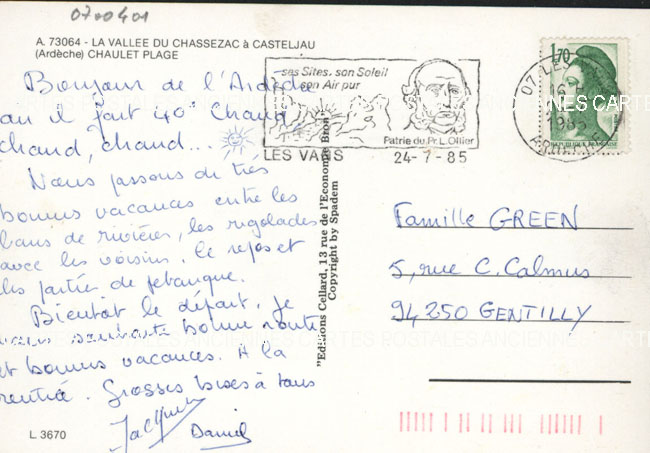 0700401
A. 73064 - LA VALLEE DU CHASSEZAC à CASTELJAU
(Ardèche) CHAULET PLAGE
Bonjour de l'Ardèche
où il fait 40° Chaud
chaud, chaud...
Nous passons de très
bonnes vacances entre les
bains de rivière, les rigolades
avec les voisins. le repos et
les parties de pétanque.
Bientôt le départ, je
vous souhaite bonne route
et bonnes vacances. A la
rentrée. Grosses bises à tous
Jacqueline
Daniel
L 3670
"Editions Cellard, 13 rue de l'Economie Bron"
Copyright by Spadem
ses Sites, son Soleil
son Air pur
Patrie du Pr. L. Ollier
LES VANS
24-7-85
1,70
07 LES
16 H
1985
ARDECHE
REPUBLIQUE FRANÇAISE
Famille GREEN
5, rue C. Calmus
94250 GENTILLY
CARTES POSTALES ANCIENNES CARTES POSTALES ANCIENNES